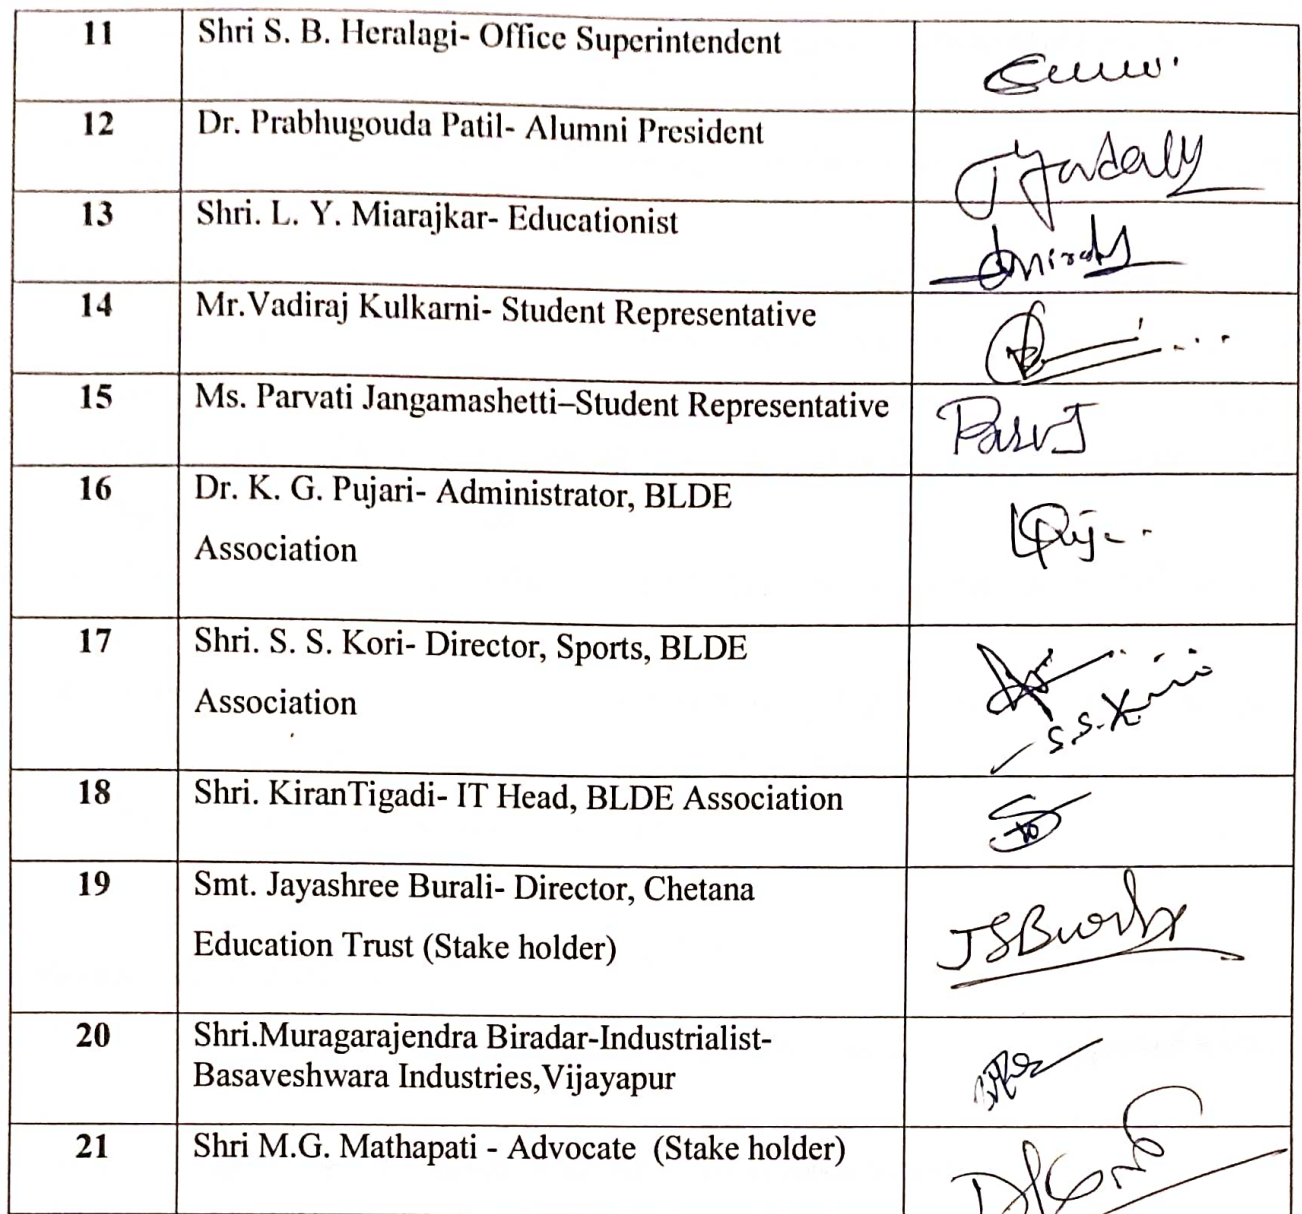 11 Shri S. B. Heralagi- Office Superintendent
12 Dr. Prabhugouda Patil- Alumni President
13 Shri. L. Y. Miarajkar- Educationist
14 Mr.Vadiraj Kulkarni- Student Representative
15 Ms. Parvati Jangamashetti–Student Representative
16 Dr. K. G. Pujari- Administrator, BLDE
Association
17 Shri. S. S. Kori- Director, Sports, BLDE
Association
S.S. Kori
18 Shri. KiranTigadi- IT Head, BLDE Association
19 Smt. Jayashree Burali- Director, Chetana
Education Trust (Stake holder)
20 Shri.Muragarajendra Biradar-Industrialist-
Basaveshwara Industries,Vijayapur
21 Shri M.G. Mathapati - Advocate (Stake holder)